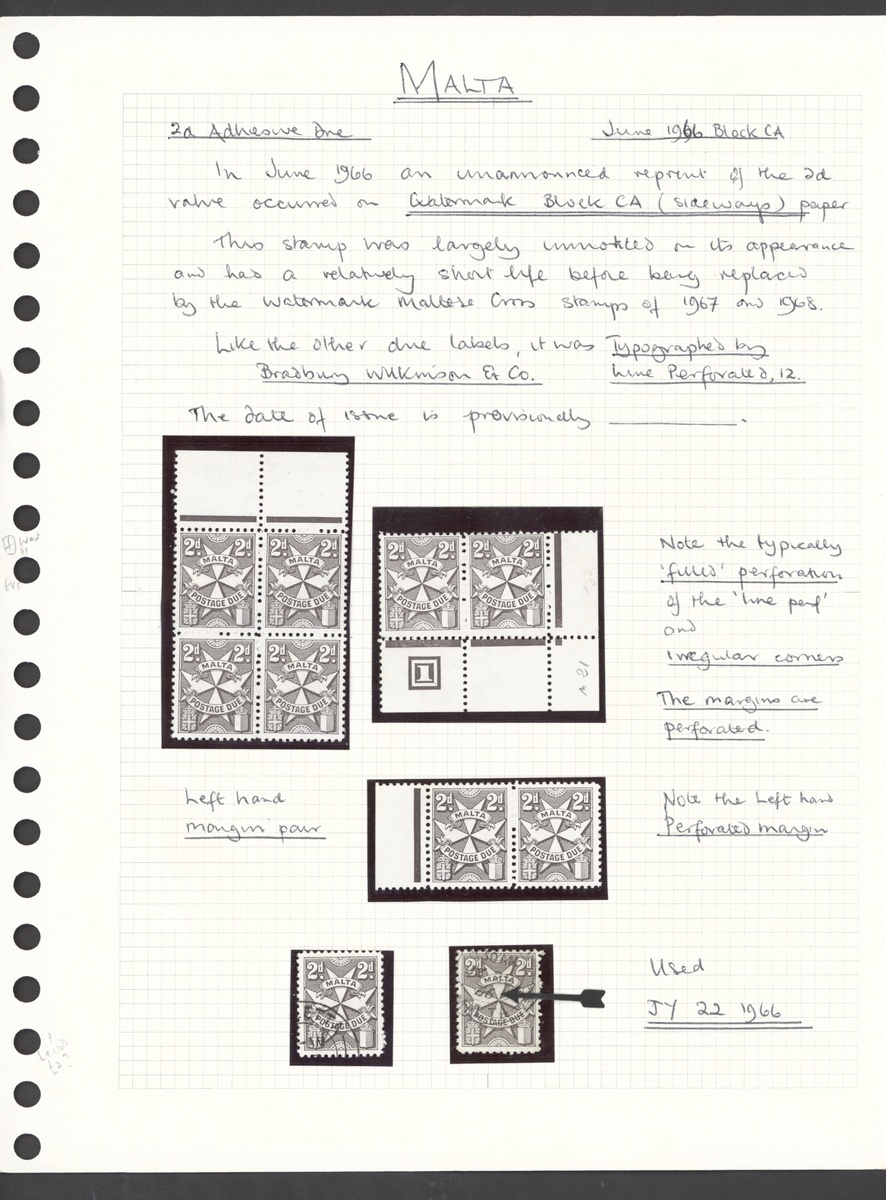 MALTA
2d Adhesive Due
June 1966 Block CA
In June 1966 an unannounced reprint of the 2d
value occurred on Watermark Block CA (sideways) paper
This stamp was largely unnoticed on its appearance
and had a relatively short life before being replaced
by the Watermark Maltese Cross stamps of 1967 and 1968.
Like the other due labels, it was Typographed by
Bradbury Wilkinson & Co. Line Perforated, 12.
The date of issue is provisionally ________.
2d 2d
MALTA
POSTAGE DUE
2d 2d
MALTA
POSTAGE DUE
2d 2d
MALTA
POSTAGE DUE
2d 2d
MALTA
POSTAGE DUE
2d 2d
MALTA
POSTAGE DUE
2d 2d
MALTA
POSTAGE DUE
1
Note the typically
'filled' perforation
of the 'line perf'
and
irregular corners
The margins are
perforated.
Left hand
margin pair
2d 2d
MALTA
POSTAGE DUE
2d 2d
MALTA
POSTAGE DUE
Note the Left hand
Perforated margin
2d 2d
MALTA
POSTAGE DUE
2d 2d
MALTA
POSTAGE DUE
Used
JY 22 1966